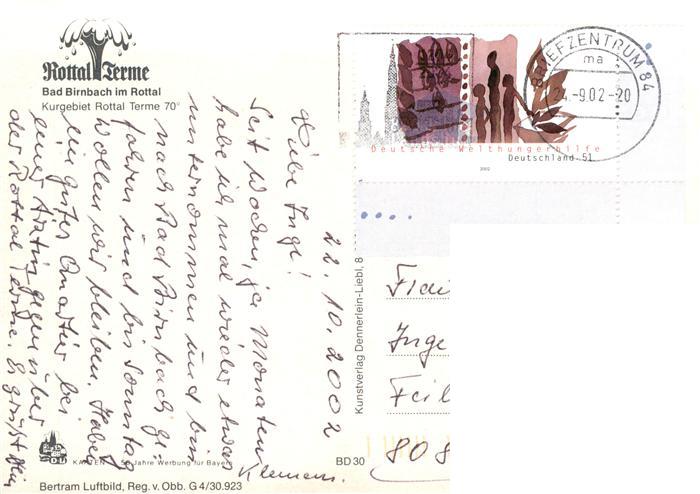 Rottal Terme
Bad Birnbach im Rottal
Kurgebiet Rottal Terme 70°
22.10.2002
Liebe Inge!
Seit Wochen, ja Monaten
habe ich mal wieder etwas
unternommen und bin
nach Bad Birnbach ge-
fahren und bis Sonntag
wollen wir bleiben. Haben
ein gutes Quartier bei
einer Ärztin gegenüber
der Rottal Terme. Es grüßt Dein
Klemens.
BRIEFZENTRUM 84
ma
24.-9.02-20
Deutsche Welthungerhilfe
Deutschland 51
2002
Frau
Inge
Feil
808
Kunstverlag Dennerlein-Liebl, 8
KARTEN
Jahre Werbung für Bayern
BD30
Bertram Luftbild, Reg. v. Obb. G 4/30.923